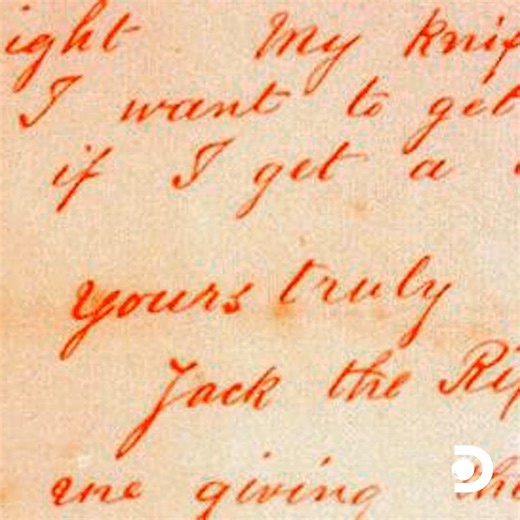 ight My knif
I want to get
if I get a
yours truly
Jack the Rip
me giving the